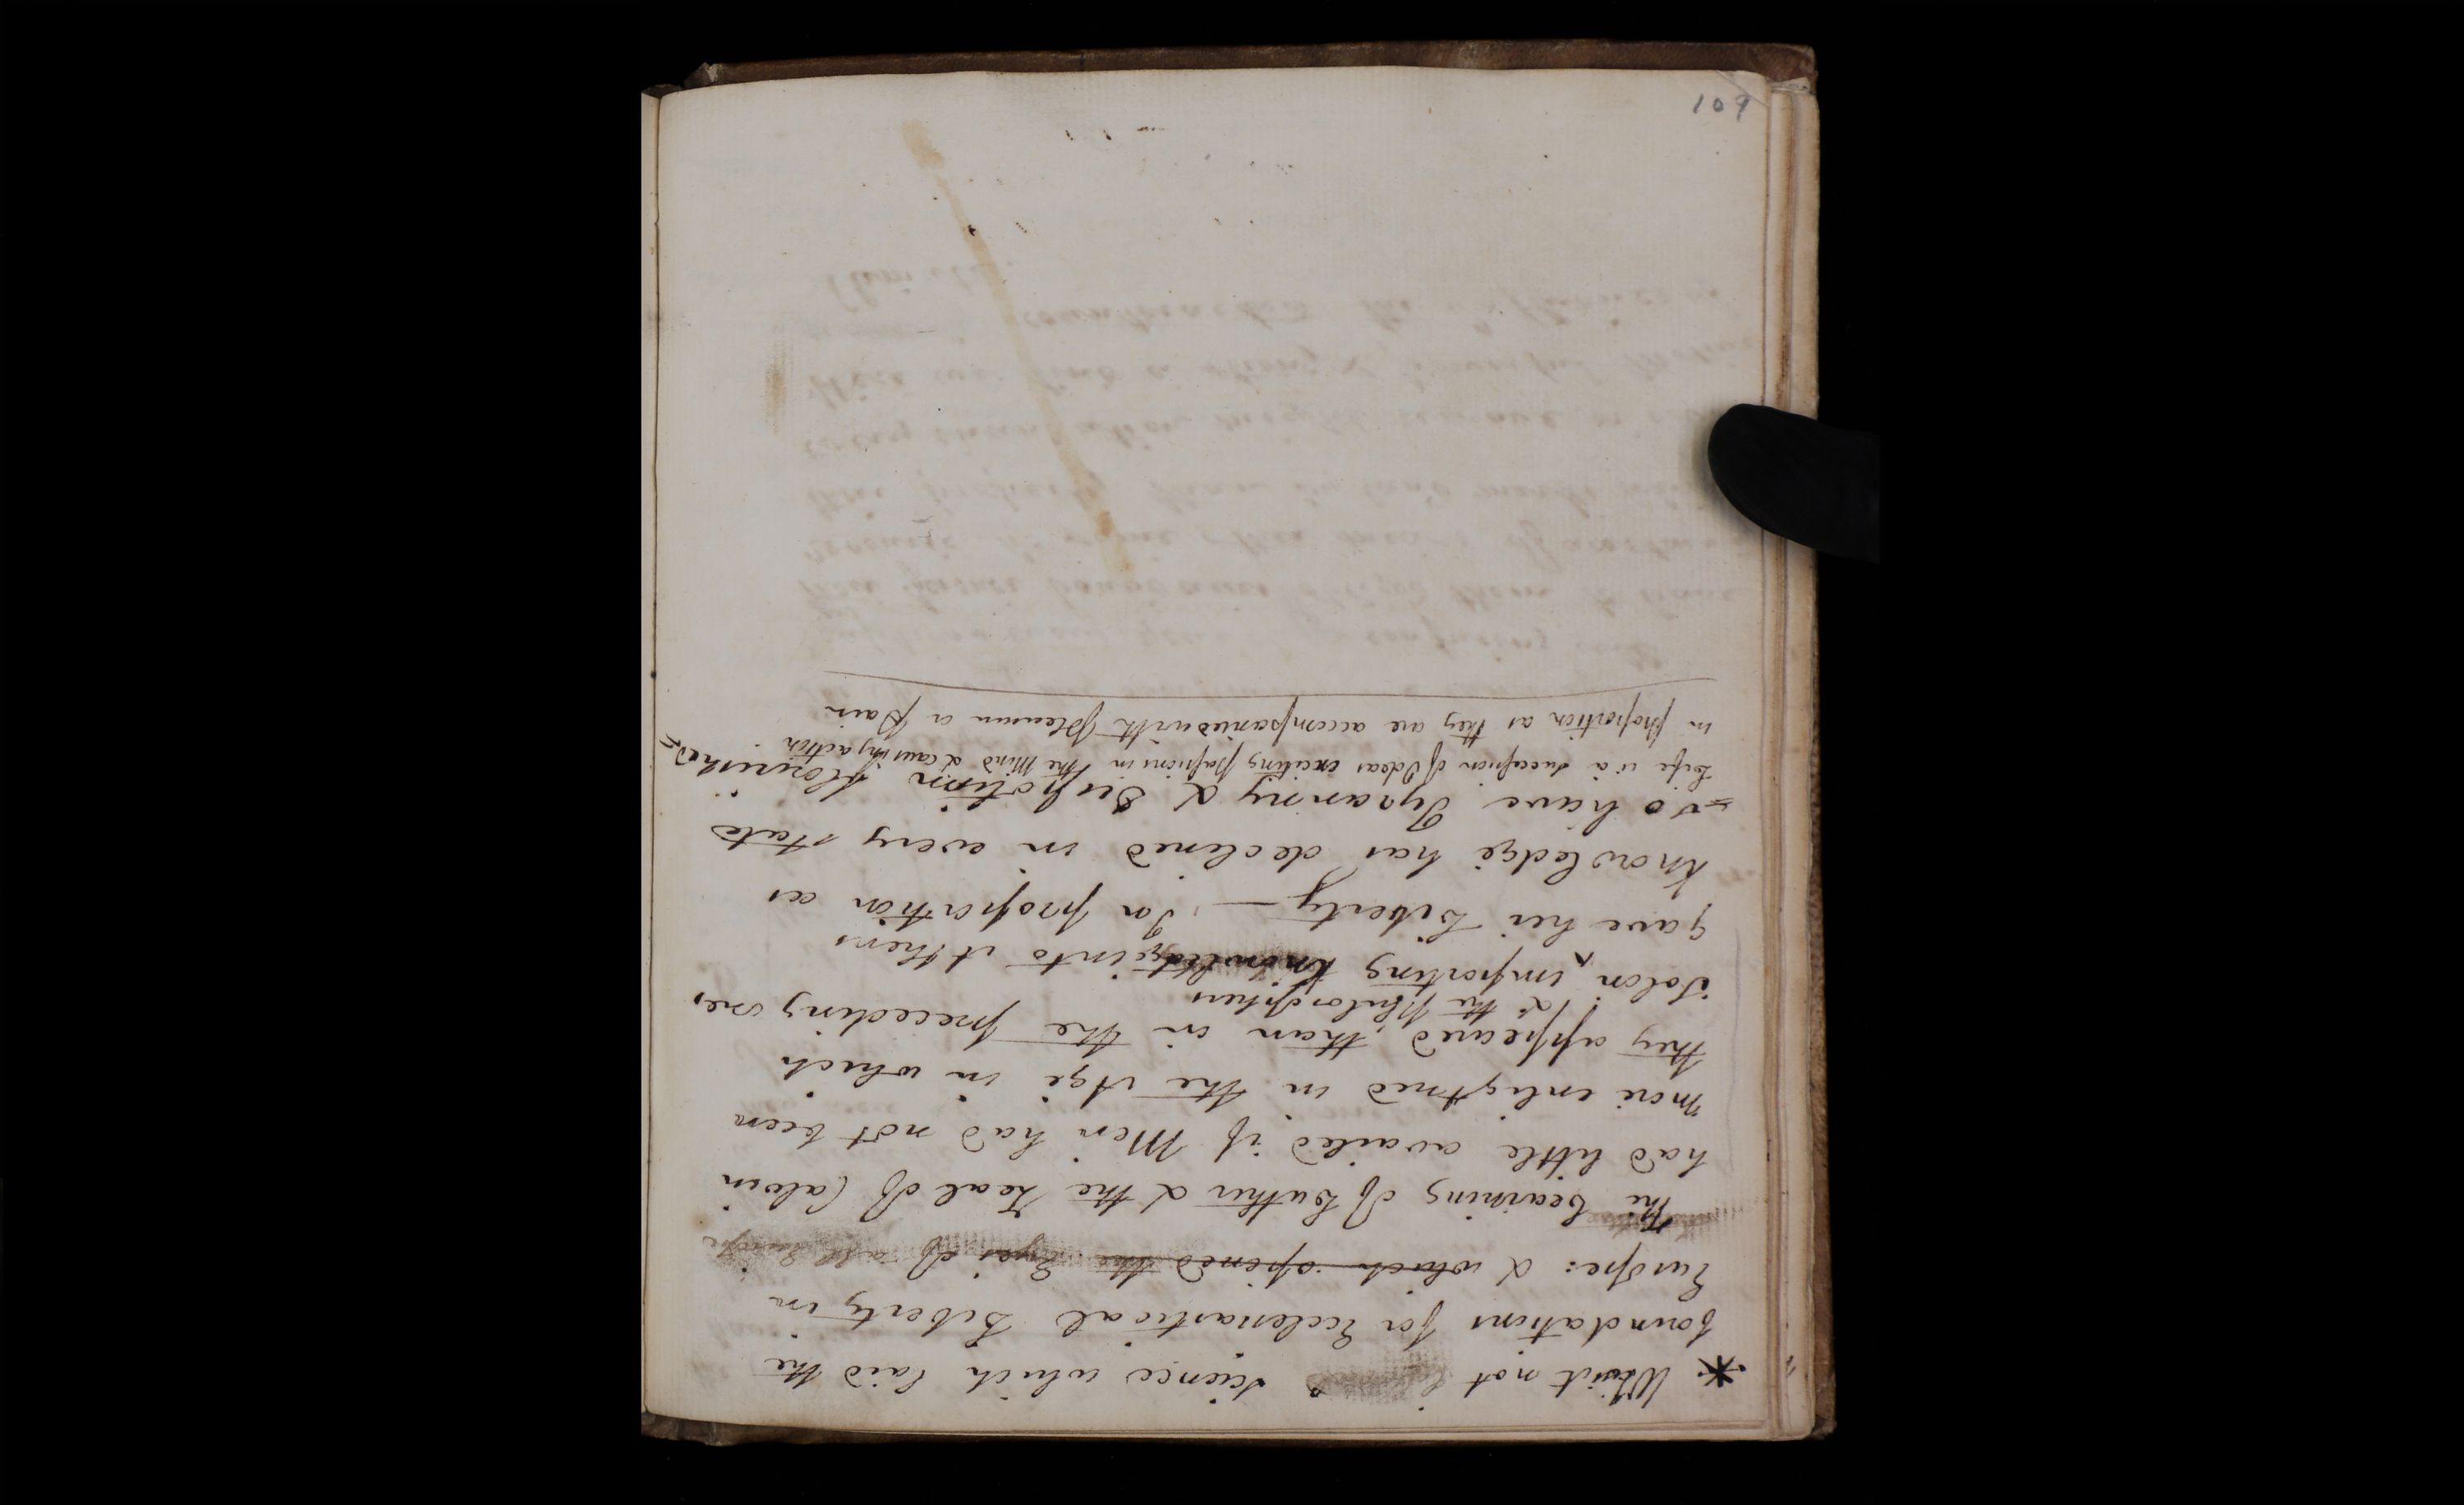 109
* Was it not science which laid the
foundations for Ecclesiastical Liberty in
Europe: & which opened the Eyes of all Europe
The Learning of Luther & the Zeal of Calvin
had little availed if Men had not been
more enlightned in the Age in which
they appeared, than in the preceding ones
& the Philosophers
Solon ^ importing knowledge into Athens
gave her Liberty — In proportion as
knowledge has declined in every state
so have Tyranny & Dispotism flourished
Life is a succession of Ideas exciting passions in the Mind & causing action
in proportion as they are accompanied with pleasure or pain